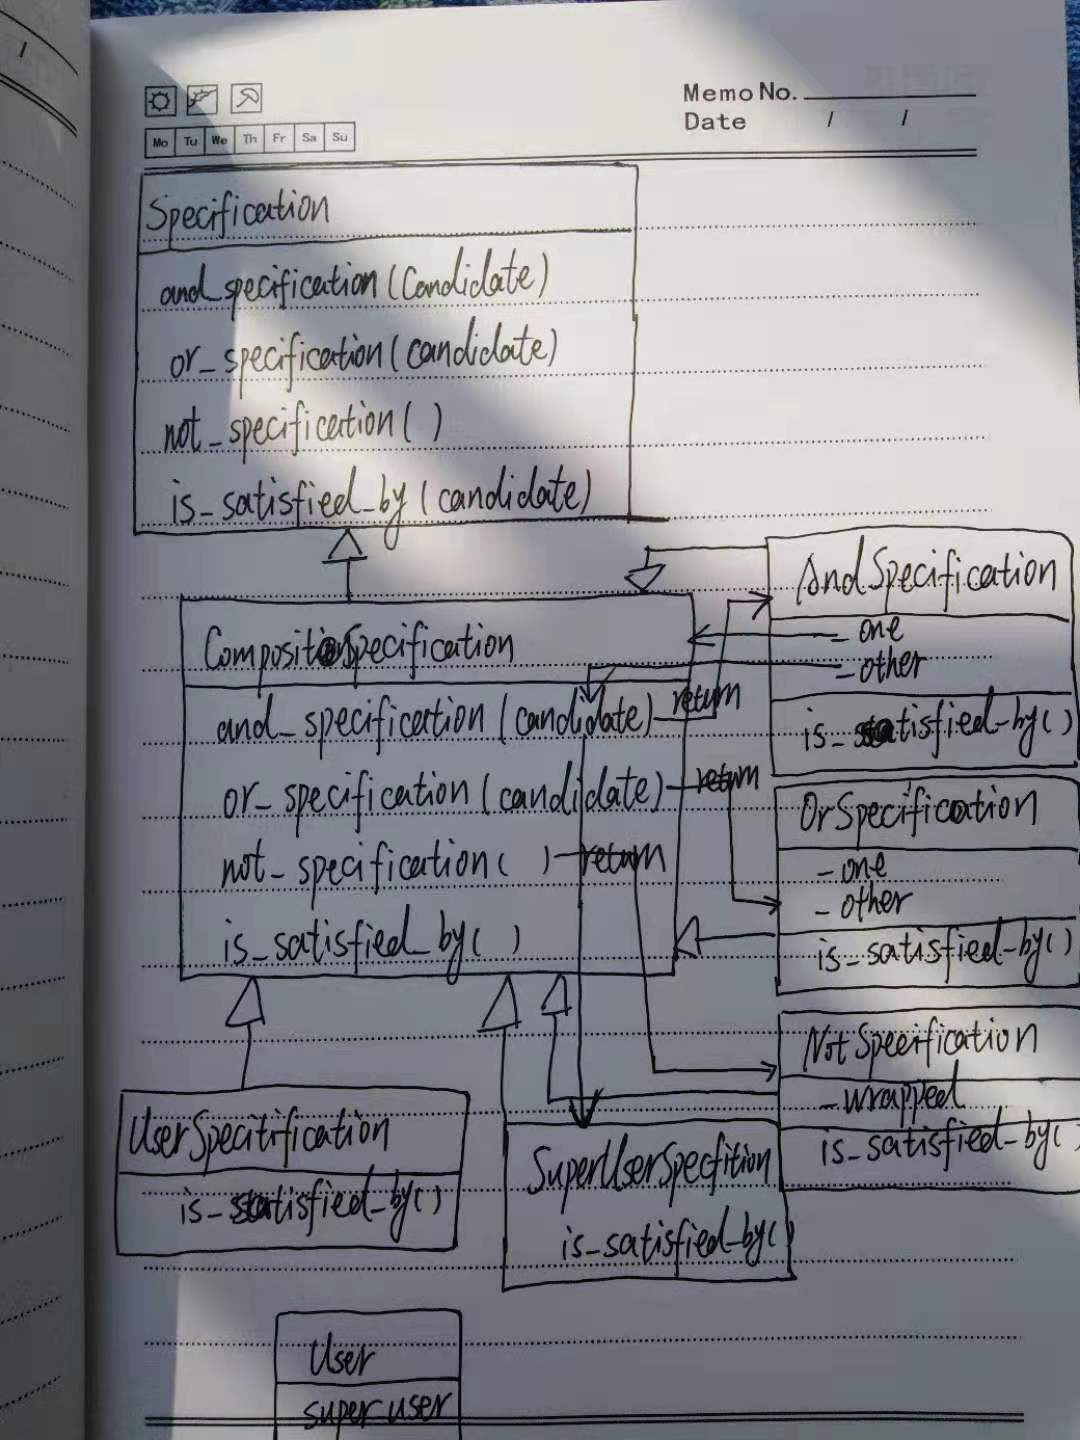 Memo No.
Date / /
Mo Tu We Th Fr Sa Su
Specification
and_specification (candidate)
or_specification (candidate)
not_specification ( )
is_satisfied_by (candidate)
CompositeSpecification
and_specification (candidate) return
or_specification (candidate) return
not_specification ( ) return
is_satisfied_by ( )
AndSpecification
- one
- other
is_satisfied_by ( )
OrSpecification
- one
- other
is_satisfied_by ( )
NotSpecification
- wrapped
is_satisfied_by (
UserSpecitification
is_satisfied_by ( )
SuperUserSpecfition
is_satisfied_by ( )
User
super user